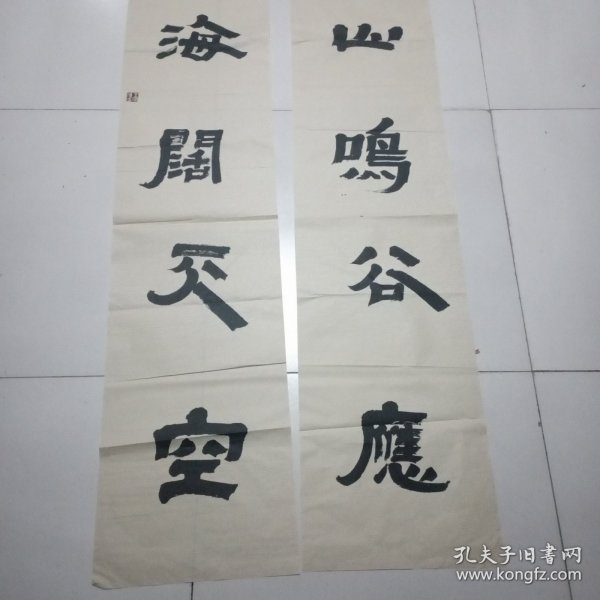 山鳴谷應
海闊天空
孔夫子旧書网
www.kongfz.com